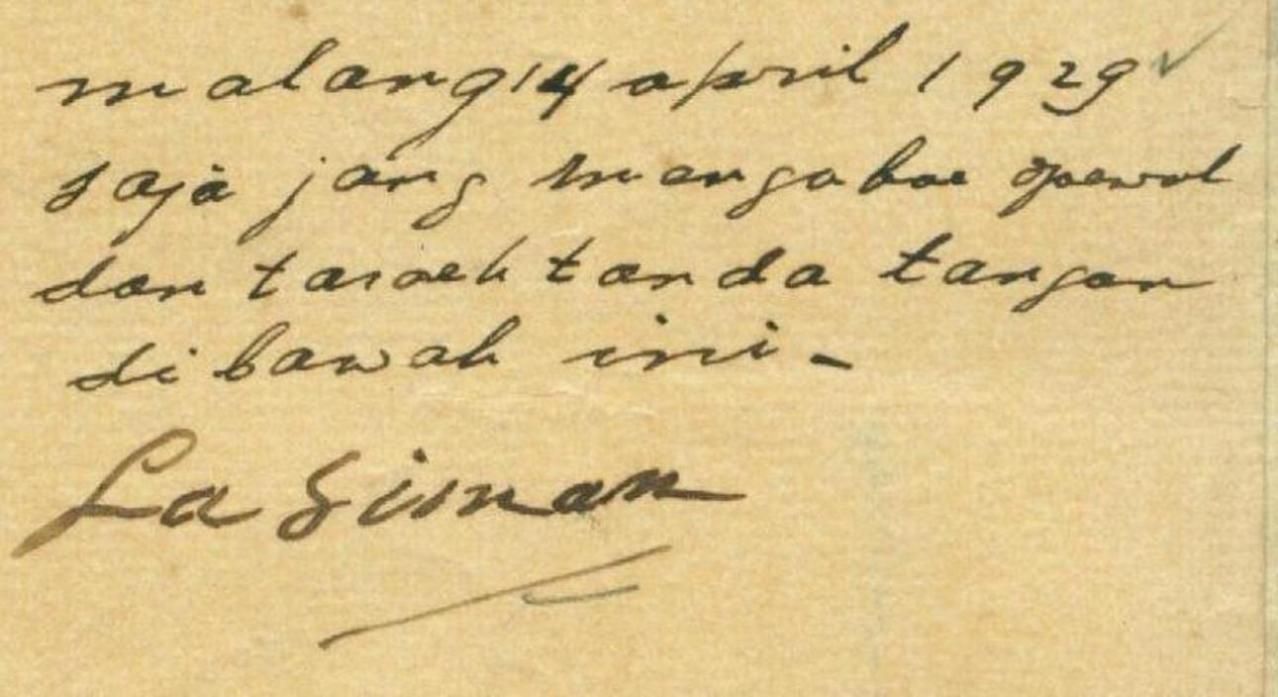 malang 14 april 1929
saja jang mengakoe djoewal
dan taroeh tanda tangan
di bawah ini -
La Siman